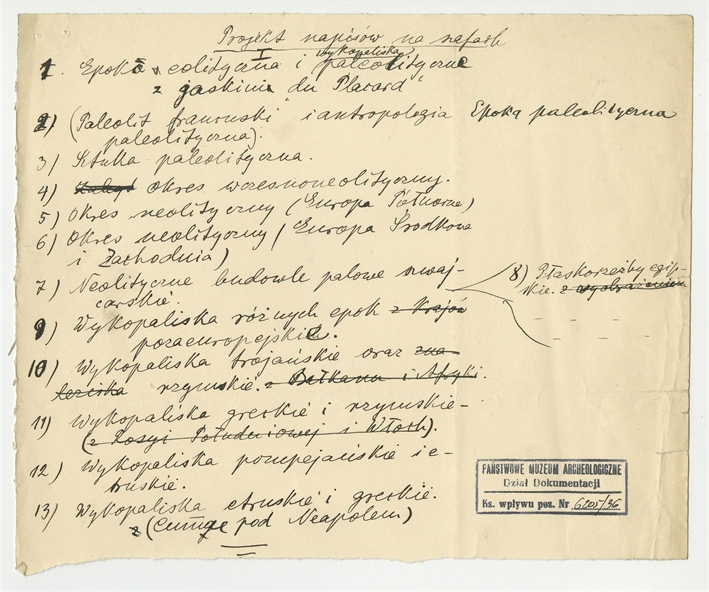 Projekt napisów na szafach
1. Epoka eolityczna i wykopaliska paleolityczne
z jaskini du Placard
2) (Paleolit francuski i antropologia Epoka paleolityczna
paleolityczna).
3) Sztuka paleolityczna.
4) Okres wczesnoneolityczny.
5) Okres neolityczny (Europa Północna)
6) Okres neolityczny (Europa Środkowa
i Zachodnia)
7) Neolityczne budowle palowe szwaj-
carskie.
8) Płaskorzeźby egip-
skie. z wyobrażeniem
9) Wykopaliska różnych epok z krajów
pozaeuropejskie.
10) Wykopaliska trojańskie oraz zna
leziska rzymskie. z Bałkanu i Afryki.
11) Wykopaliska greckie i rzymskie
(z Rosyi Południowej i Włoch).
12) Wykopaliska pompejańskie i e-
truskie.
13) Wykopaliska etruskie i greckie.
z (Cumae pod Neapolem)
PAŃSTWOWE MUZEUM ARCHEOLOGICZNE
Dział Dokumentacji
Ks. wpływu poz. Nr 6205/36